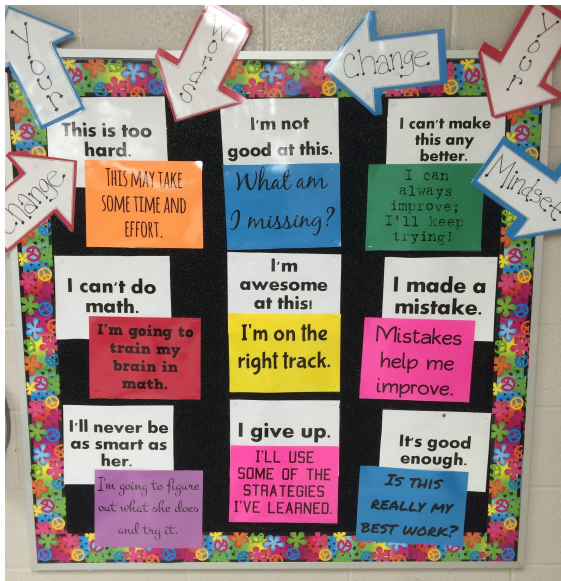 Change
Your
Words
Change
Your
Mindset
This is too
hard.
THIS MAY TAKE
SOME TIME AND
EFFORT.
I'm not
good at this.
What am
I missing?
I can't make
this any
better.
I can
always
improve;
I'll keep
trying!
I can't do
math.
I'm going to
train my
brain in
math.
I'm
awesome
at this!
I'm on the
right track.
I made a
mistake.
Mistakes
help me
improve.
I'll never be
as smart as
her.
I'm going to figure
out what she does
and try it.
I give up.
I'LL USE
SOME OF THE
STRATEGIES
I'VE LEARNED.
It's good
enough.
IS THIS
REALLY MY
BEST WORK?